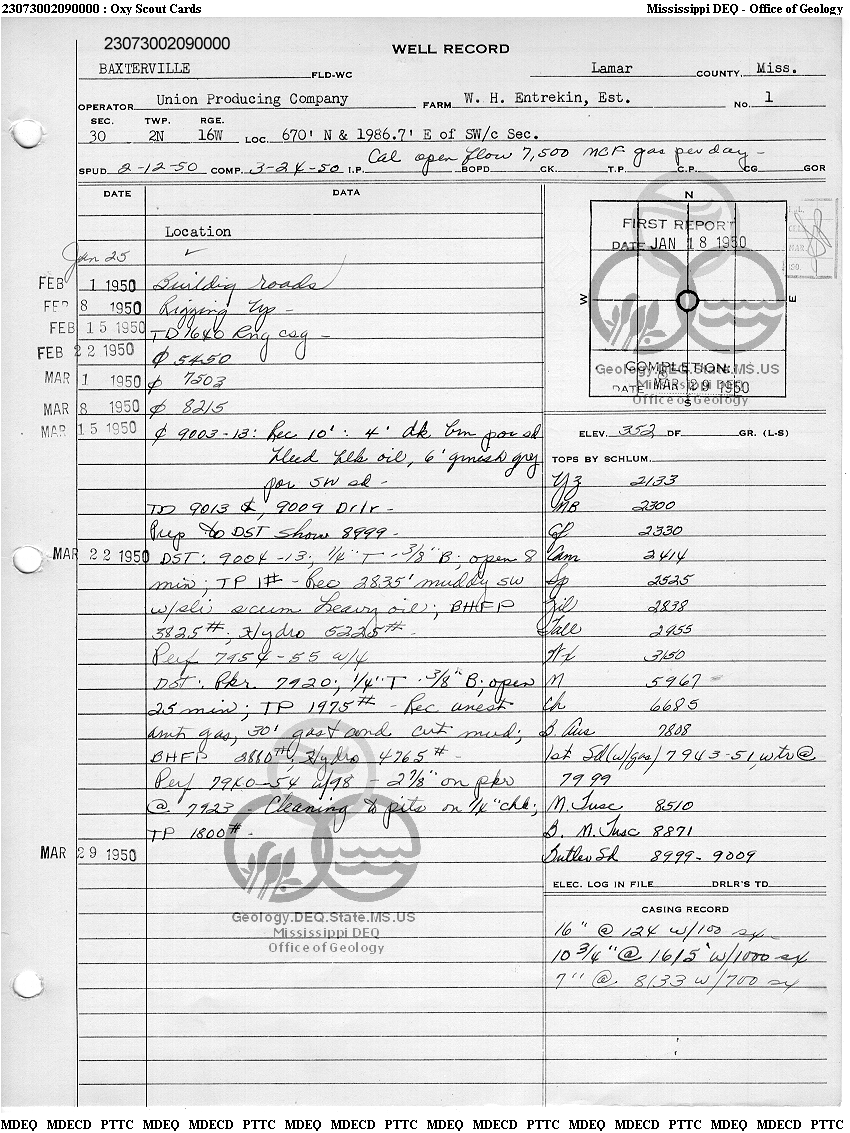 23073002090000 : Oxy Scout Cards Mississippi DEQ - Office of Geology
23073002090000
WELL RECORD
BAXTERVILLE FLD-WC Lamar COUNTY, Miss.
OPERATOR Union Producing Company FARM W. H. Entrekin, Est. NO. 1
SEC. TWP. RGE.
30 2N 16W LOC. 670' N & 1986.7' E of SW/c Sec.
Cal open flow 7,500 MCF gas per day -
SPUD 2-12-50 COMP. 3-24-50 I.P. BOPD CK. T.P. C.P. CG GOR
DATE DATA
Location
Jan 25 ✓
FEB 1 1950 Building roads
FEB 8 1950 Rigging Up -
FEB 15 1950 TD 1640 Rng csg -
FEB 22 1950 ₵ 5450
MAR 1 1950 ₵ 7503
MAR 8 1950 ₵ 8215
MAR 15 1950 ₵ 9003-13: Rec 10': 4' dk brn por sd
bleed blk oil, 6' grnish grey
por SW sd -
TD 9013 ₵, 9009 Drlr -
Prep to DST show 8999 -
MAR 22 1950 DST: 9004-13; 1/4" T - 3/8" B; open 8
min; TP 1# - Rec 2835' muddy SW
w/sli scum heavy oil; BHFP
3825#; Hydro 5225# -
Perf 7954-55 w/4
DST: Pkr. 7920; 1/4" T - 3/8" B; open
25 min; TP 1975# - Rec unest
amt gas, 30' gas cut mud;
BHFP 2880#; Hydro 4765# -
Perf 7940-54 w/98 - 2 7/8" on pkr
@ 7923 - Cleaning to pits on 1/4" chk;
TP 1800# -
MAR 29 1950
N
FIRST REPORT
DATE JAN 18 1950
W E
COMPLETION:
DATE MAR 29 1950
S
Geology.DEQ.State.MS.US
Mississippi DEQ
Office of Geology
ELEV. 352 DF GR. (L-S)
TOPS BY SCHLUM.
Yz 2133
MB 2300
Gf 2330
Cam 2414
Sp 2525
Zil 2838
Tall 2955
Wx 3150
M 5967
Ch 6685
B. Aus 7808
1st Sd (w/gas) 7943-51, wtr @
7999
M. Tusc 8510
B. M. Tusc 8871
Butler Sd 8999-9009
ELEC. LOG IN FILE DRLR'S TD
CASING RECORD
16" @ 124 w/100 sx
10 3/4" @ 1615' w/1000 sx
7" @ 8133 w/700 sx
Geology.DEQ.State.MS.US
Mississippi DEQ
Office of Geology
MDEQ MDECD PTTC MDEQ MDECD PTTC MDEQ MDECD PTTC MDEQ MDECD PTTC MDEQ MDECD PTTC MDEQ MDECD PTTC